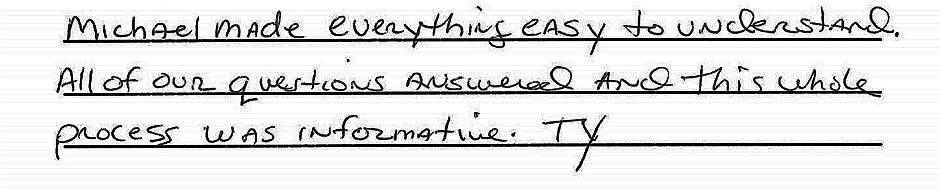 Michael made everything easy to understand.
All of our questions answered and this whole
process was informative. TY